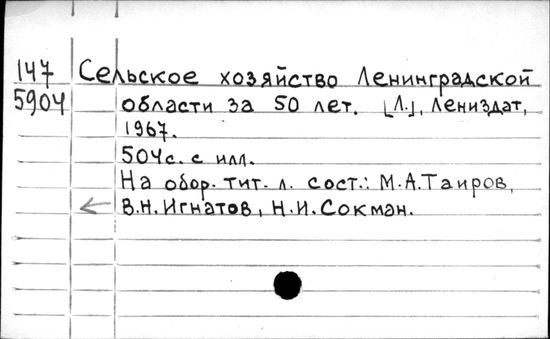 147 Сельское хозяйство Ленинградской
5904 области за 50 лет. [Л.], Лениздат,
1967.
504с. с илл.
На обор. тит. л. сост.: М.А.Таиров,
В.Н.Игнатов, Н.И.Сокман.